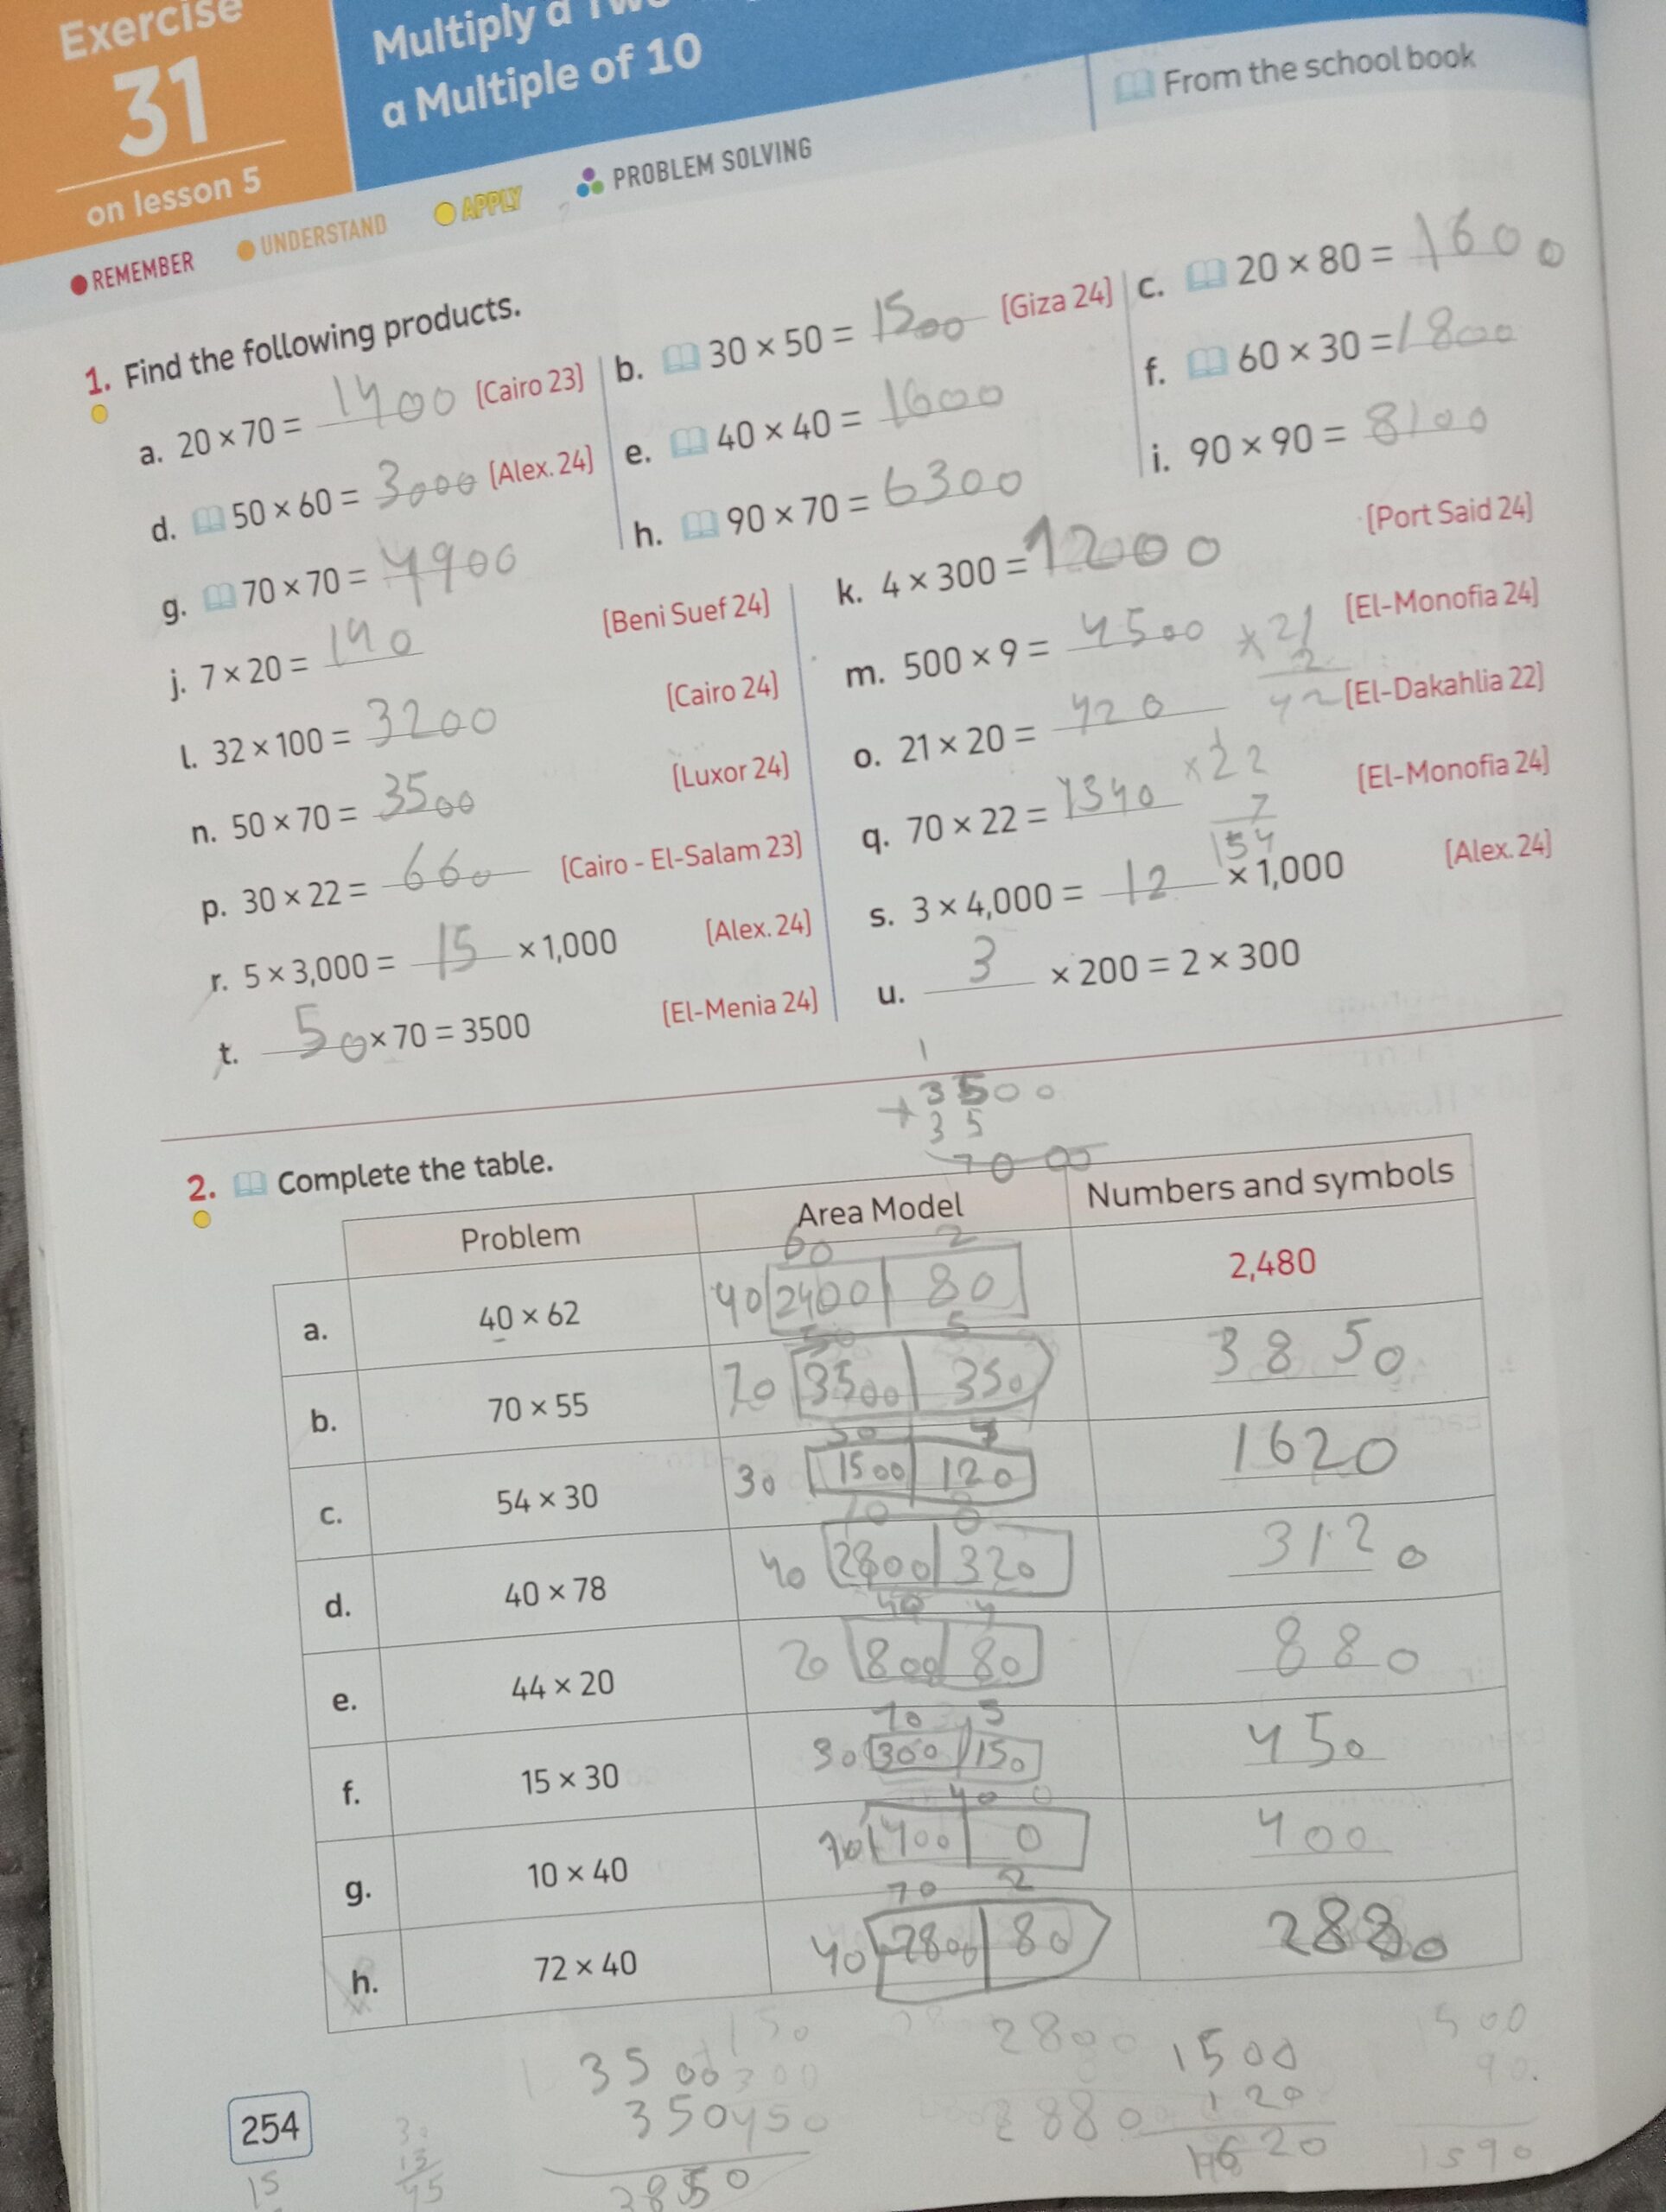 Exercise
31
on lesson 5
Multiply a Two
a Multiple of 10
From the school book
REMEMBER UNDERSTAND APPLY PROBLEM SOLVING
1. Find the following products.
a. 20 × 70 = 1400 [Cairo 23]
b. 30 × 50 = 1500 [Giza 24]
c. 20 × 80 = 1600
d. 50 × 60 = 3000 [Alex. 24]
e. 40 × 40 = 1600
f. 60 × 30 = 1800
g. 70 × 70 = 4900
h. 90 × 70 = 6300
i. 90 × 90 = 8100
j. 7 × 20 = 140 [Beni Suef 24]
k. 4 × 300 = 1200 [Port Said 24]
l. 32 × 100 = 3200 [Cairo 24]
m. 500 × 9 = 4500 [El-Monofia 24]
× 21
2
42
n. 50 × 70 = 3500 [Luxor 24]
o. 21 × 20 = 420 [El-Dakahlia 22]
p. 30 × 22 = 660 [Cairo - El-Salam 23]
q. 70 × 22 = 1540 [El-Monofia 24]
1
× 22
7
154
r. 5 × 3,000 = 15 × 1,000 [Alex. 24]
s. 3 × 4,000 = 12 × 1,000 [Alex. 24]
t. 50 × 70 = 3500 [El-Menia 24]
u. 3 × 200 = 2 × 300
1
3500
+ 35
7000
2. Complete the table.
Problem Area Model Numbers and symbols
60 2
a. 40 × 62 40 2400 80 2,480
50 5
b. 70 × 55 70 3500 350 3850
50 4
c. 54 × 30 30 1500 120 1620
70 8
d. 40 × 78 40 2800 320 3120
40 4
e. 44 × 20 20 800 80 880
10 5
f. 15 × 30 30 300 150 450
40 0
g. 10 × 40 10 400 0 400
70 2
h. 72 × 40 40 2800 80 2880
150
3500 300 2800 1500 1500
350 450 120 90
3850 2880 1620 1590
254
30
15
45
15